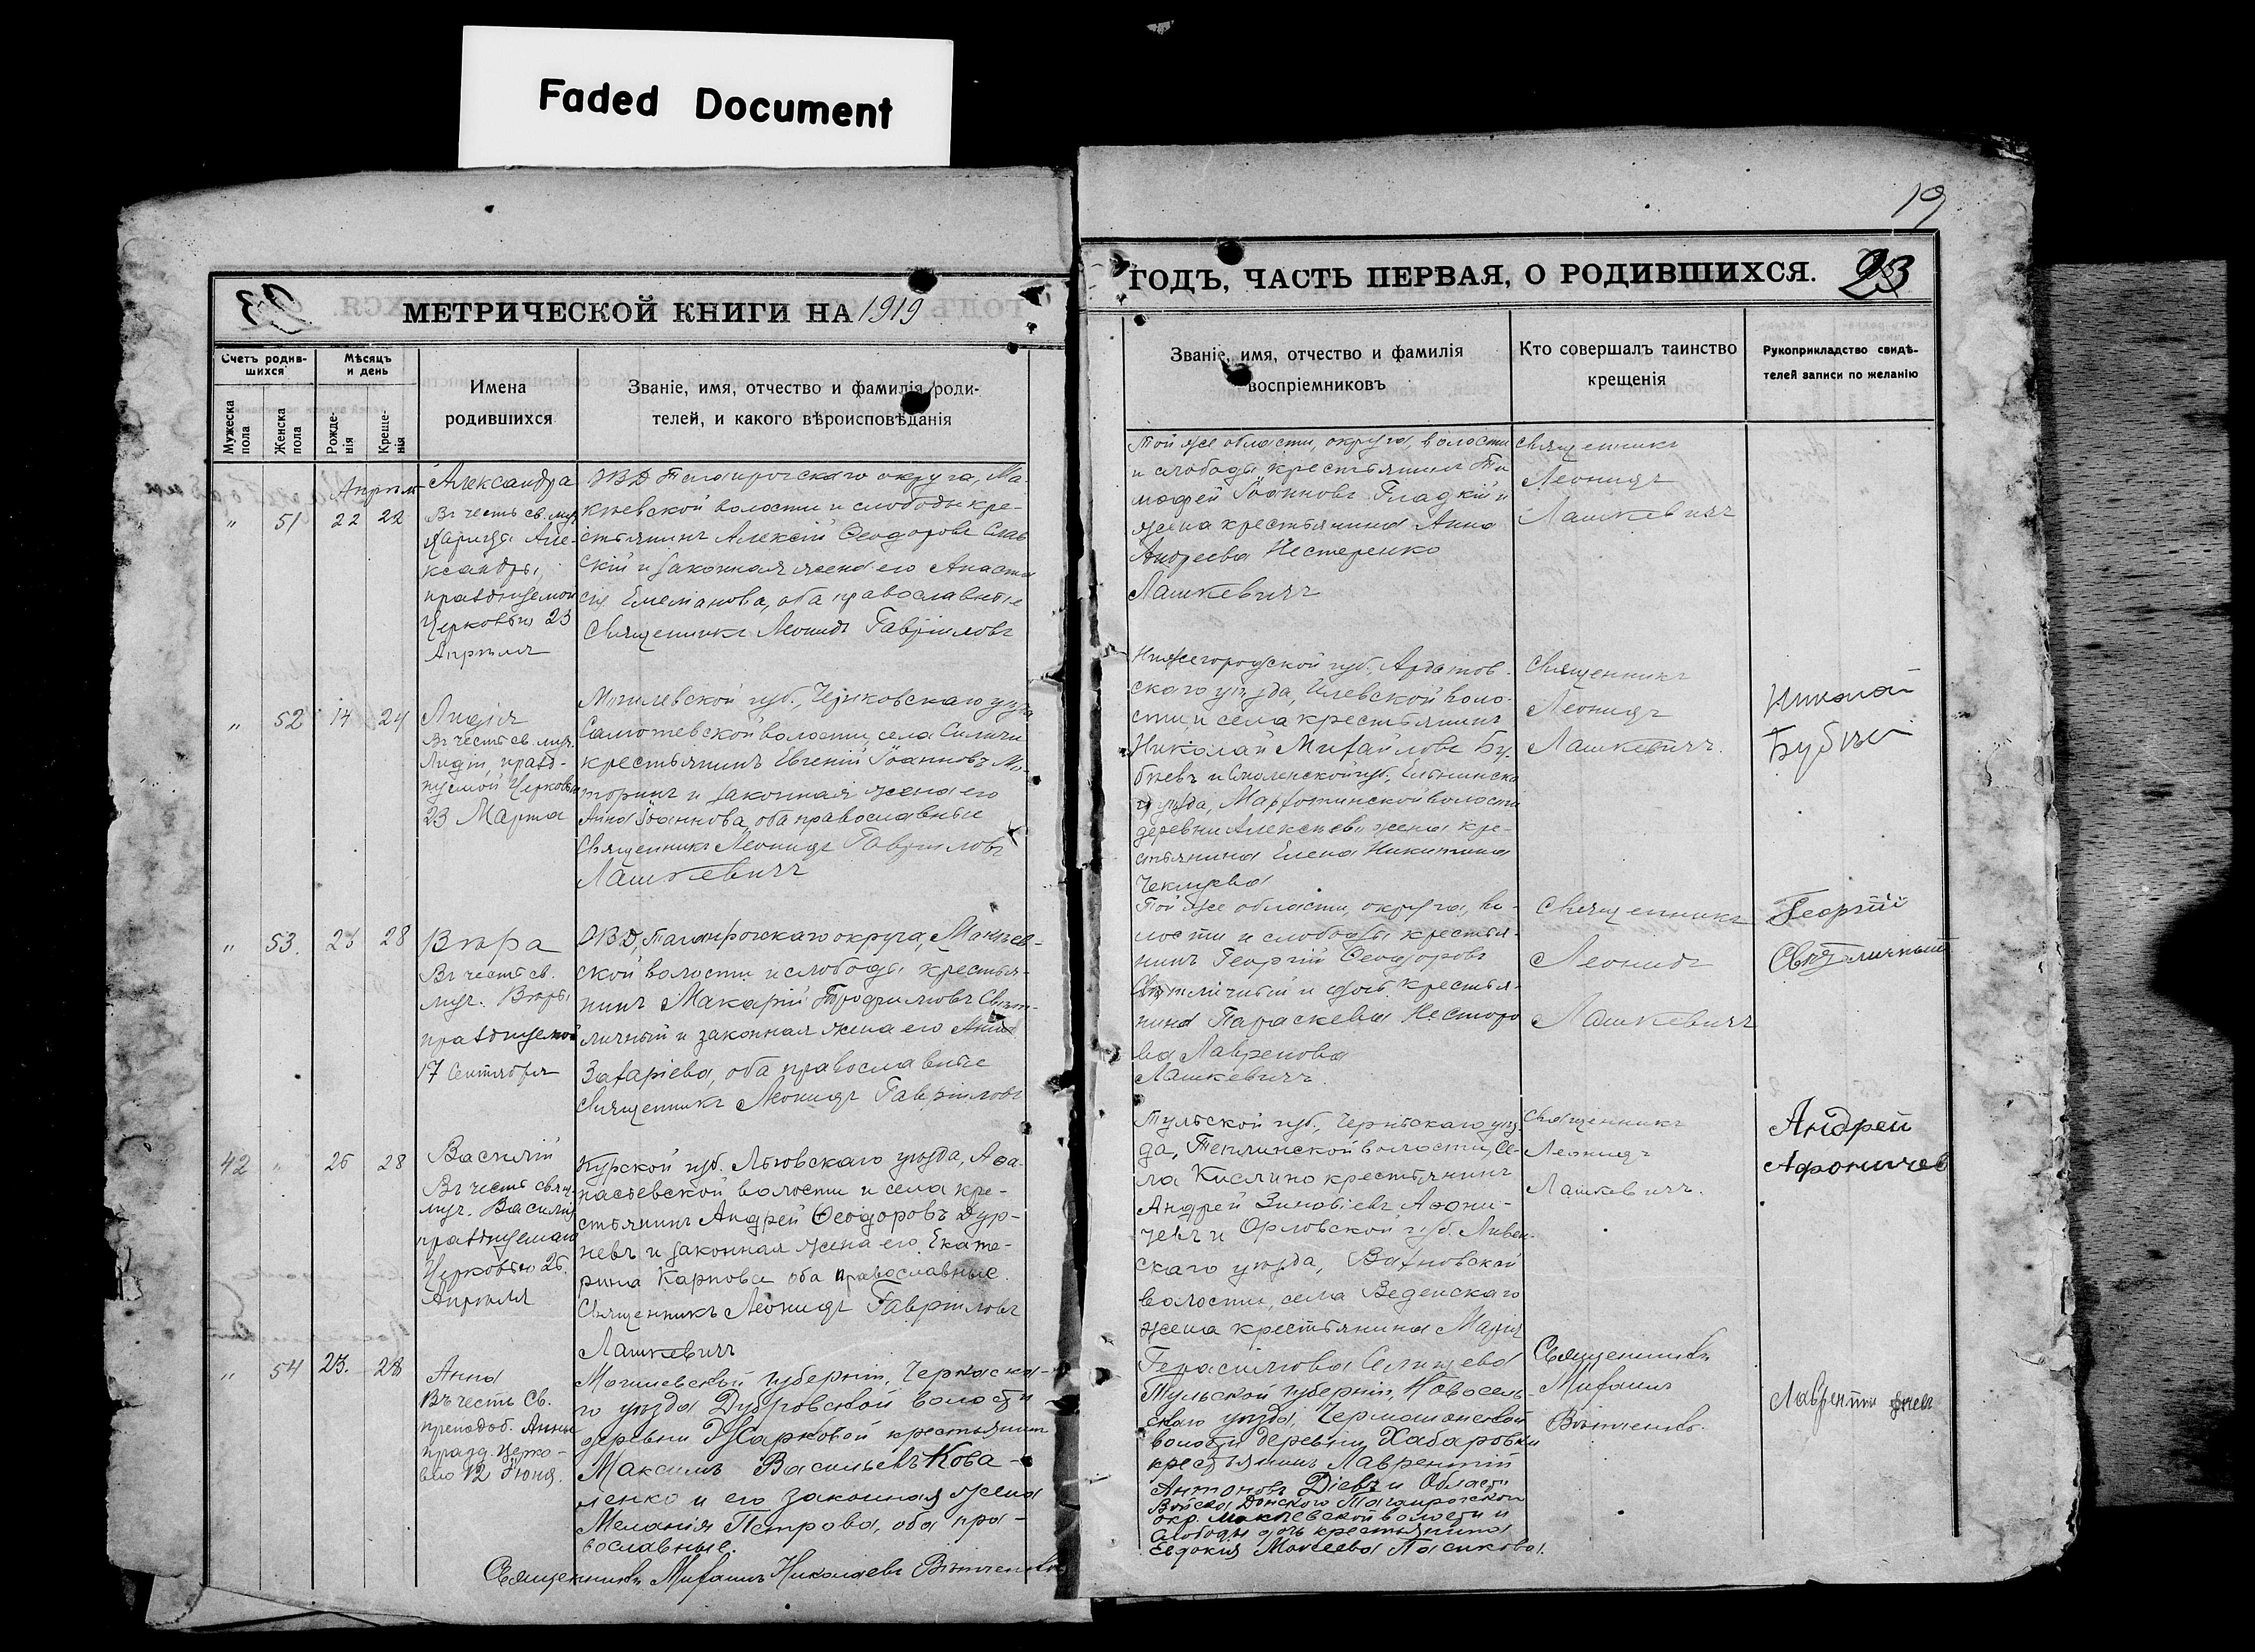 Faded Document
19
МЕТРИЧЕСКОЙ КНИГИ НА 1919
ГОДЪ, ЧАСТЬ ПЕРВАЯ, О РОДИВШИХСЯ.
23
Счетъ родив-
шихся
Мѣсяцъ
и день
Мужеска
пола
Женска
пола
Рожде-
нія
Креще-
нія
Имена
родившихся
Званіе, имя, отчество и фамилія роди-
телей, и какого вѣроисповѣданія
Званіе, имя, отчество и фамилія
воспріемниковъ
Кто совершалъ таинство
крещенія
Рукоприкладство свидѣ-
телей записи по желанію
" 51 22 22
Александра
Въ честь св. муч.
Царицы Але-
ксандры,
празднуемой
Церковью 23
Апрѣля
ОВД Таганрогскаго округа, Ма-
кѣевской волости и слободы кре-
стьянинъ Алексій Ѳеодоровъ
и законная жена его Анаста
сія Емеліанова, оба православные
Священникъ Леонидъ Гавріиловъ
Той же области, округа, волости
и слободы крестьянинъ Ти
моѳей Іоанновъ Гладкій и
жена крестьянина Анна
Андреева Нестеренко
Лашкевичъ
Священникъ
Леонидъ
Лашкевичъ
" 52 14 24
Лидія
Въ честь св. муч.
Лидіи, празд-
нуемой Церковью
23 Марта
Могилевской губ., Чериковскаго уѣзда
волости, села
крестьянинъ Евгеній Іоанновъ Мо-
торинъ и законная жена его
Анна Іоаннова, оба православные
Священникъ Леонидъ Гавріиловъ
Лашкевичъ
Нижегородской губ., Ардатов-
скаго уѣзда, Илевской воло-
сти и села крестьянинъ
Николай Михайловъ Бу-
бневъ и Смоленской губ., Ельнинска
го уѣзда, волости
деревни жена кре-
стьянина Елена Никитина
Священникъ
Леонидъ
Лашкевичъ.
Николай
" 53. 28
Вѣра
Въ честь св.
муч. Вѣры
празднуемой
17 Сентября
ОВД, Таганрогскаго округа, Макѣев-
ской волости и слободы крестья-
нинъ Макарій Трофимовъ Свѣт-
личный и законная жена его Анна
Захаріева, оба православные
Священникъ Леонидъ Гавріиловъ
Той же области, округа, во-
лости и слободы крестья-
нинъ Георгій Ѳеодоровъ
Свѣтличный и дочь крестья-
нина Параскева Несторо
ва Лавренова
Лашкевичъ.
Священникъ
Леонидъ
Лашкевичъ
Георгій
Свѣтличный
42 " 26 28
Василій
Въ честь свящ.
муч. Василія
празднуемаго
Церковью 26.
Апрѣля
Курской губ. Льговскаго уѣзда, Аѳа-
насьевской волости и села кре-
стьянинъ Андрей Ѳеодоровъ Дур-
невъ и законная жена его Екате-
рина Карпова оба православные.
Священникъ Леонидъ Гавріиловъ
Лашкевичъ
Тульской губ., Чернскаго уѣз
да, волости, Се-
ла Кислино крестьянинъ
Андрей Зиновіевъ Аѳони-
чевъ и Орловской губ. Ливен-
скаго уѣзда,
волости, села Веденскаго
жена крестьянина Марія
Герасимова Селищева
Священникъ
Леонидъ
Лашкевичъ.
Андрей
Афоничев
" 54 23. 28
Анна
Въ честь Св.
преподоб. Анны
празд. Церко-
вью 12 Іюня.
Могилевской губерніи,
го уѣзда Дубровской волости
деревни Жарковой крестьянинъ
Максимъ Васильевъ Кова-
ленко и его законная жена
Меланія Петрова, оба пра-
вославные.
Священникъ Михаилъ Николаевъ
Тульской губерніи, Новосель-
скаго уѣзда,
волости деревни Хабаровки
крестьянинъ Лаврентій
Антоновъ Діевъ и Области
Войска Донского Таганрогскаго
окр. Макѣевской волости и
слободы дочь крестьянина
Евдокія Моисеева Пасикова.
Священникъ
Михаилъ
Лаврентий